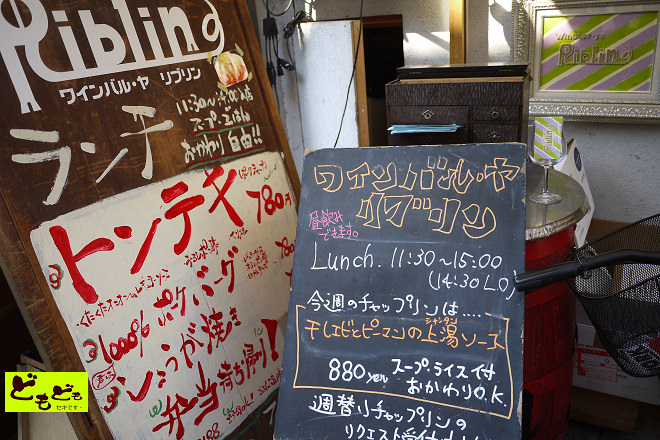 Ribling
ワインバル・ヤ リブリン
ランチ
スープ・ごはん
おかわり 自由!!
トンテキ
780円
1000% ポケバーグ
しょうが焼き
弁当 持ち帰り!
Ribling
ワインバル・ヤ
リブリン
昼飲み
できます。
Lunch. 11:30~15:00
(14:30 LO)
今週のチャップリンは.....
干しエビとピーマンの上湯ソース
シャンタン
880yen スープ・ライス付
おかわりO.K.
週替りチャップリンの
リクエスト受付
どもども
セキです～